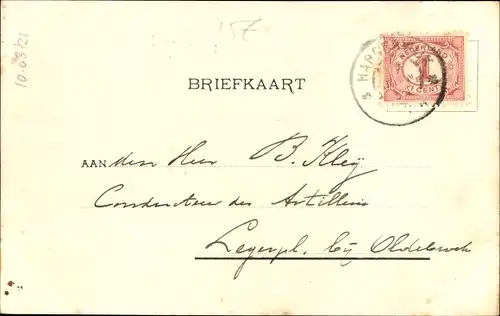 10.03/21
15z
BRIEFKAART
NEDERLAND
1
CENT
AAN den Heer B. Kley
Conducteur der Artillerie
Legerpl. bij Oldebroek